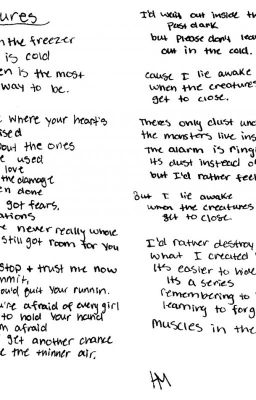 ures
n the freezer
is cold
en is the most
way to be.
e where your heart's
ised
bout the ones
e used
love
the damage
en done
got fears.
ations
e never really whole
still got room for you
stop + trust me now
mmit,
ould quit your runnin.
u're afraid of every girl
to hold your hand
m afraid
get another chance
e the thinner air.
I'd wait out inside th
past dark
but please don't leav
out in the cold.
cause I lie awake
when the creatures
get to close.
Theres only dust und
the monsters live ins
the alarm is ringi
Its dust instead o
but I'd rather feel
But I lie awake
when the creatures
get to close.
I'd rather destroy
what I created
Its easier to hide
Its a series
remembering to
learning to forg
muscles in the
HM